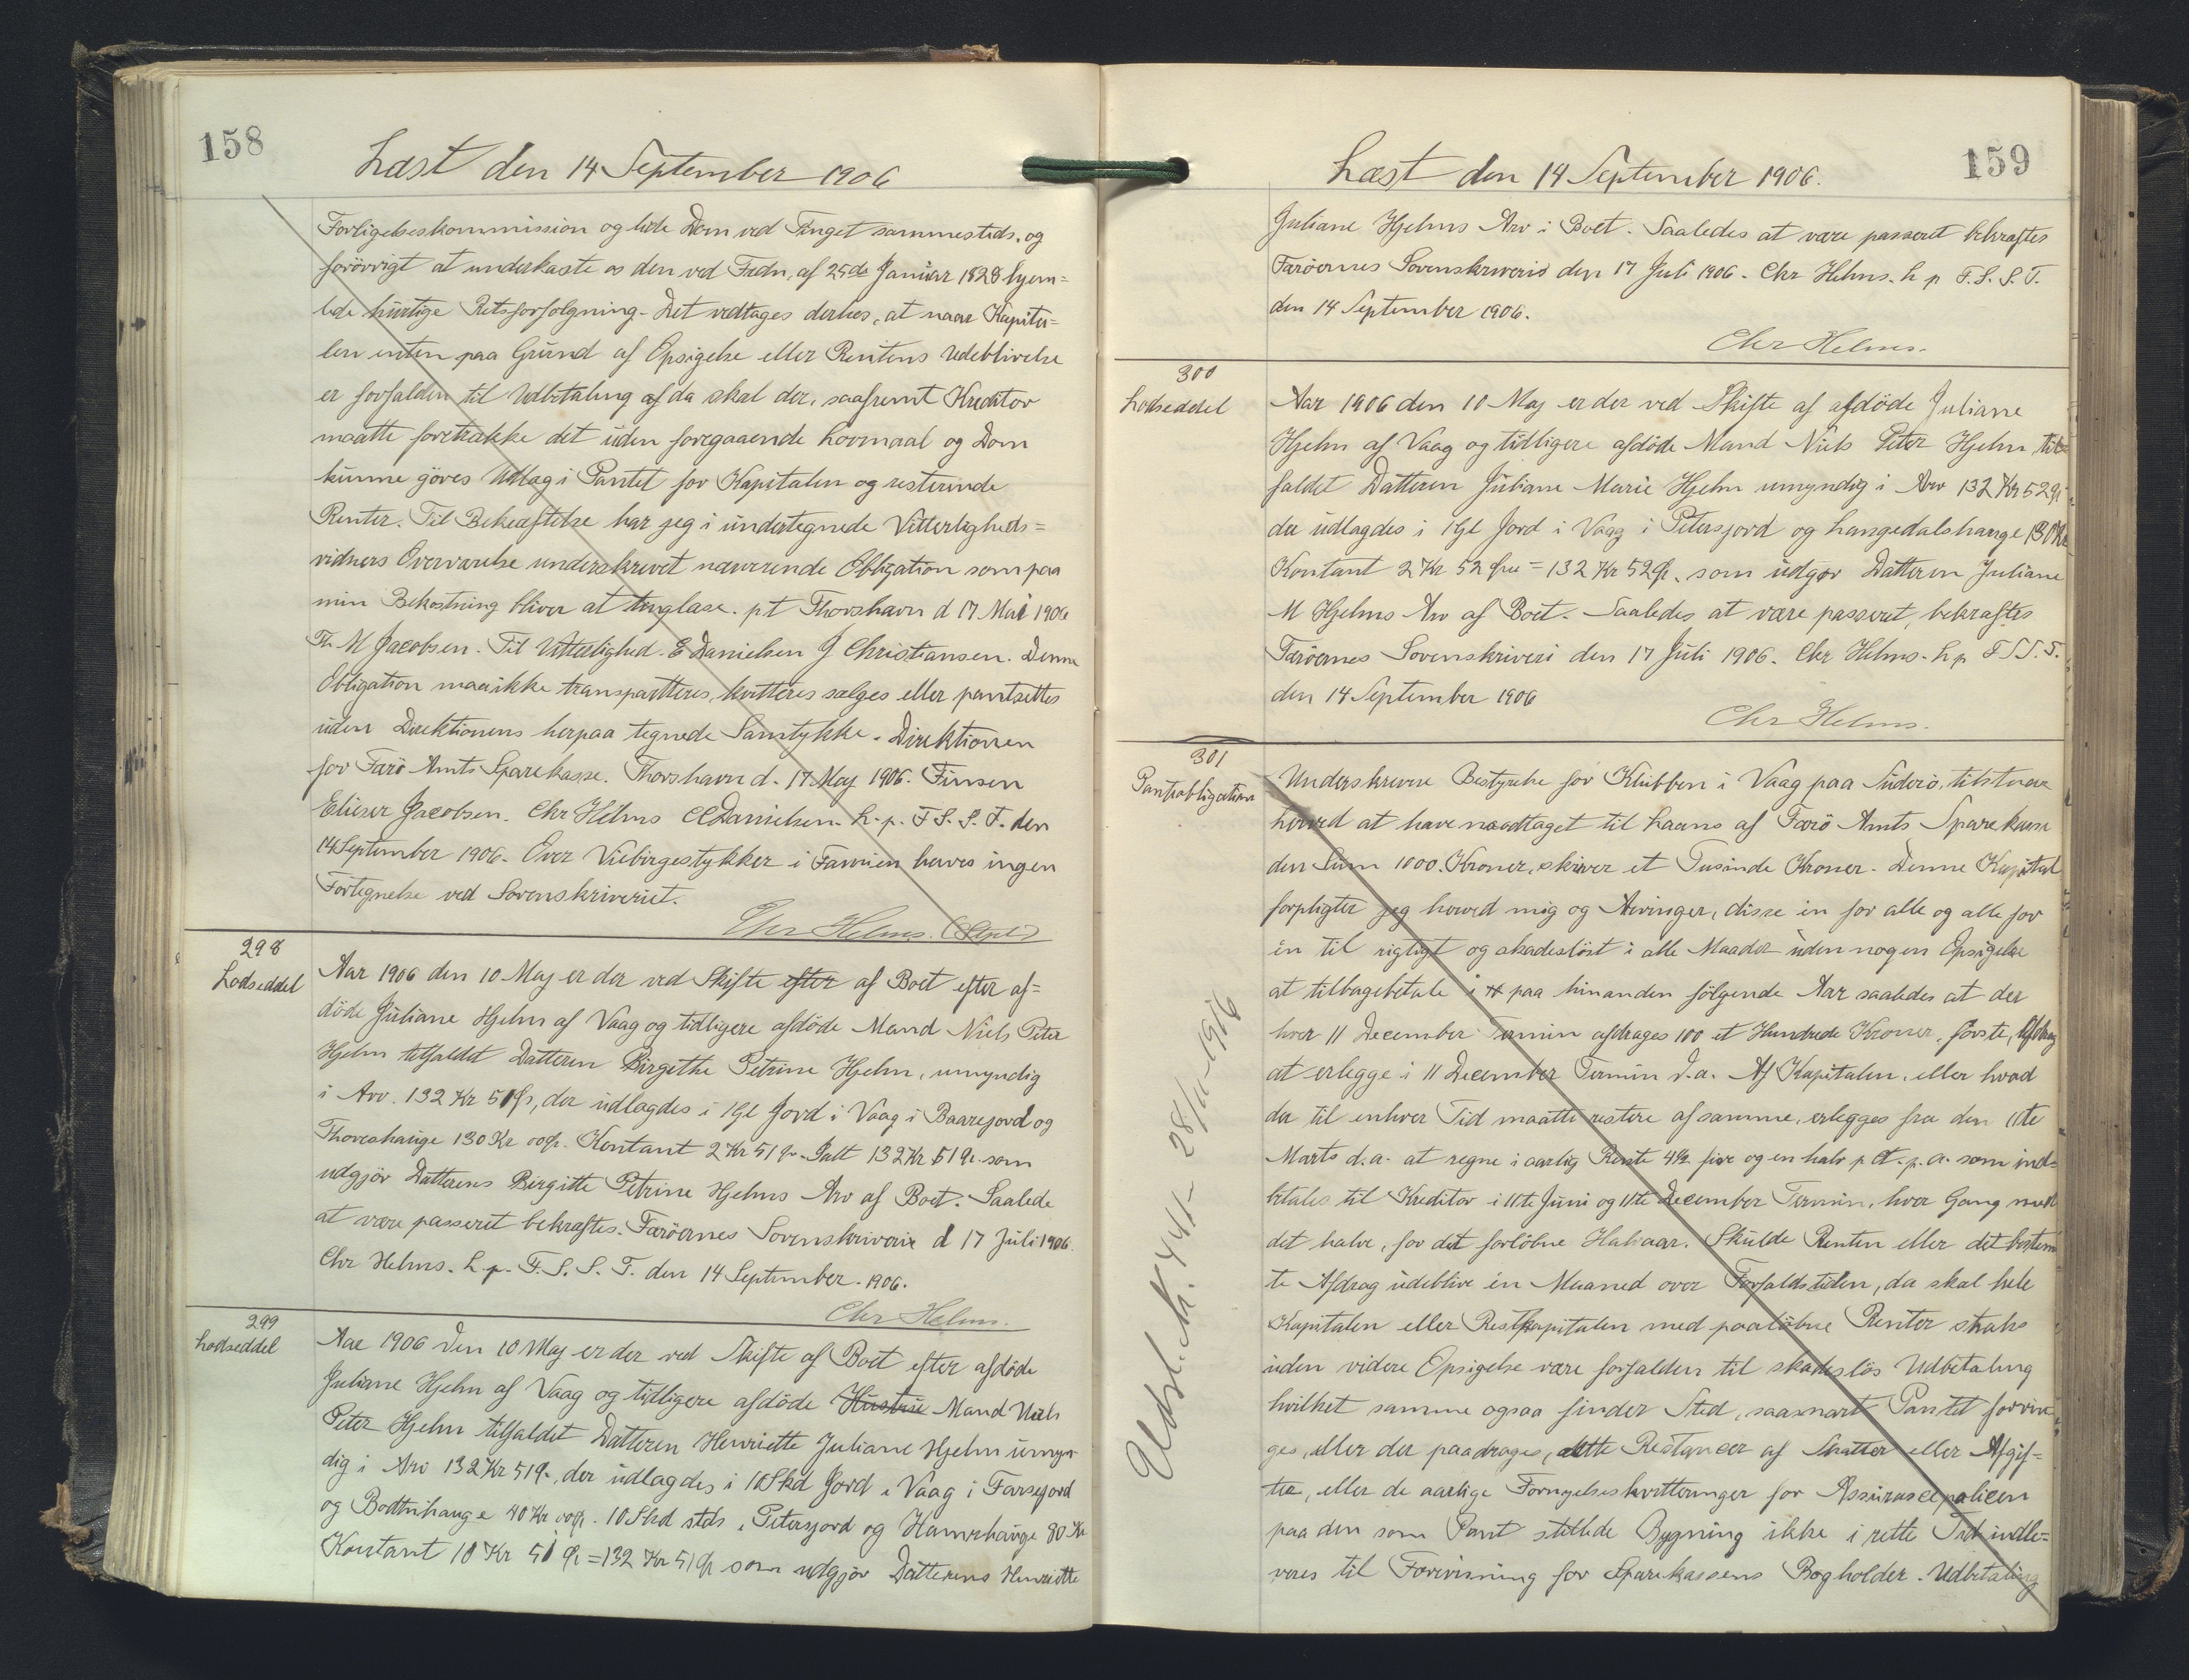 158
Læst den 14 September 1906
Forligelseskommission og lide Dom ved Tinget sammesteds, og
forövrigt at underkaste os den ved Frdn. af 25de Januar 1828 hjem=
lede hurtige Retsforfölgning. Det vedtages derhos, at naar Kapita=
len enten paa Grund af Opsigelse eller Rentens Udeblivelse
er forfalden til Udbetaling af da skal der, saafremt Kreditor
maatte foretrække det uden foregaaende Lovmaal og Dom
kunne göres Udlag i Pantet for Kapitalen og resterende
Renter. Til Bekræftelse har jeg i undertegnede Vitterligheds=
vidners Overværelse underskrevet nærværende Obligation som paa
min Bekostning bliver at tinglæse. p t Thorshavn d 17 Mai 1906
Th. M Jacobsen. Til Vitterlighed. E Danielsen J Christiansen. Denne
Obligation maa ikke transportteres, kvitteres sælges eller pantsættes
uden Direktionens herpaa tegnede Samtykke. Direktionen
for Færö Amts Sparekasse. Thorshavn d. 17 Maj 1906. Finsen
Elieser Jacobsen. Chr Helms CCDanielsen. L. p. F. S. S. T. den
14 September 1906. Over Viebirgestykker i Famien haves ingen
Fortegnelse ved Sorenskriveriet.
Chr Helms. (Stpl)
298
Lodseddel
Aar 1906 den 10 Maj er der ved Skifte efter af Boet efter af=
döde Juliane Hjelm af Vaag og tidligere afdöde Mand Niels Peter
Hjelm tilfaldet Datteren Birgithe Petrine Hjelm, umyndig
i Arv. 132 Kr 51 Ør, der udlagdes i 1 Gl Jord i Vaag i Baarejord og
Thoreshauge 130 Kr 00 ør. Kontant 2 Kr 51 ør. Ialt 132 Kr 51 Ør. som
udgjör Datterens Birgitte Petrine Hjelms Arv af Boet. Saalede
at være passeret bekræftes. Færöernes Sorenskriveri d 17 Juli 1906.
Chr Helms. L. p. F. S. S. T. den 14 September. 1906.
Chr Helms.
299
Lodseddel
Aar 1906 den 10 Maj er der ved Skifte af Boet efter afdöde
Juliane Hjelm af Vaag og tidligere afdöde Hustrue Mand Niels
Peter Hjelm tilfaldet Datteren Henriette Juliane Hjelm umyn
dig i Arv 132 Kr 51 Ø., der udlagdes i 10 Skd Jord i Vaag i Farsejord
og Bodtnhauge 40 Kr 00 ør. 10 Skd stds i Petersjord og Hamrehauge 80 Kr
Kontant 10 Kr 51 Ør = 132 Kr 51 Ør som udgjör Datterens Henriette
159
Læst den 14 September 1906.
Juliane Hjelms Arv i Boet. Saaledes at være passeret bekræftes
Færöernes Sorenskriveri den 17 Juli 1906. Chr Helms. L p F. S. S. T.
den 14 September 1906.
Chr Helms.
300
Lodseddel
Aar 1906 den 10 Maj er der ved Skifte af afdöde Juliane
Hjelm af Vaag og tidligere afdöde Mand Niels Peter Hjelm, til=
faldet Datteren Juliane Marie Hjelm umyndig i Arv 132 Kr 52 Ør
der udlagdes i 1 Gl Jord i Vaag i Petersjord og Langedalshauge 130 Kr
Kontant 2 Kr 52 Øre = 132 Kr 52 Ør, som udgör Datteren Juliane
M Hjelms Arv af Boet. Saaledes at være passeret, bekræftes
Færöernes Sorenskriveri den 17 Juli 1906. Chr Helms. L p F S S. T.
den 14 September 1906
Chr Helms.
301
Pantobligation
Underskrevne Bestyrelse for Klubben i Vaag paa Suderö, tilstaar
herved at have modtaget til Laans af Færö Amts Sparekasse
den Sum 1000 Kroner, skriver et Tusinde Kroner. Denne Kapital
forpligter jeg herved mig og Arvinger, disse en for alle og alle for
én til rigtigt og skadeslöst i alle Maader uden nogen Opsigelse
at tilbagebetale i paa hinanden fölgende Aar saaledes at der
hver 11 December Termin afdrages 100 et Hundrede Kroner, förste, Afdrag
at erlegge i 11 December Termin d. a. Af Kapitalen, eller hvad
der til enhver Tid maatte restere af samme, erlegges fra den 11te
Marts d. a. at regne i aarlig Rente 4½ fire og en halv p Ct. p. a. som ind=
betales til Kreditor i 11te Juni og 11te December Termin, hver Gang med
det halve, for det forlöbne Halvaar. Skulde Renten eller det bestem
te Afdrag udeblive én Maaned over Forfaldstiden, da skal hele
Kapitalen eller Restkapitalen med paalöbne Renter straks
uden videre Opsigelse være forfalden til skadeslös Udbetaling
hvilket samme ogsaa finder Sted, saasnart Pantet forrin
ges, eller der paadrages, dette Restancer af Skatter eller Afgif=
ter, eller de aarlige Fornyelseskvitteringer for Assurancepolicen
paa den som Pant stillede Bygning ikke i rette Tid indle=
veres til Forevisning for Sparekassens Bogholder. Udbetaling
Udsl. 28/11-1916